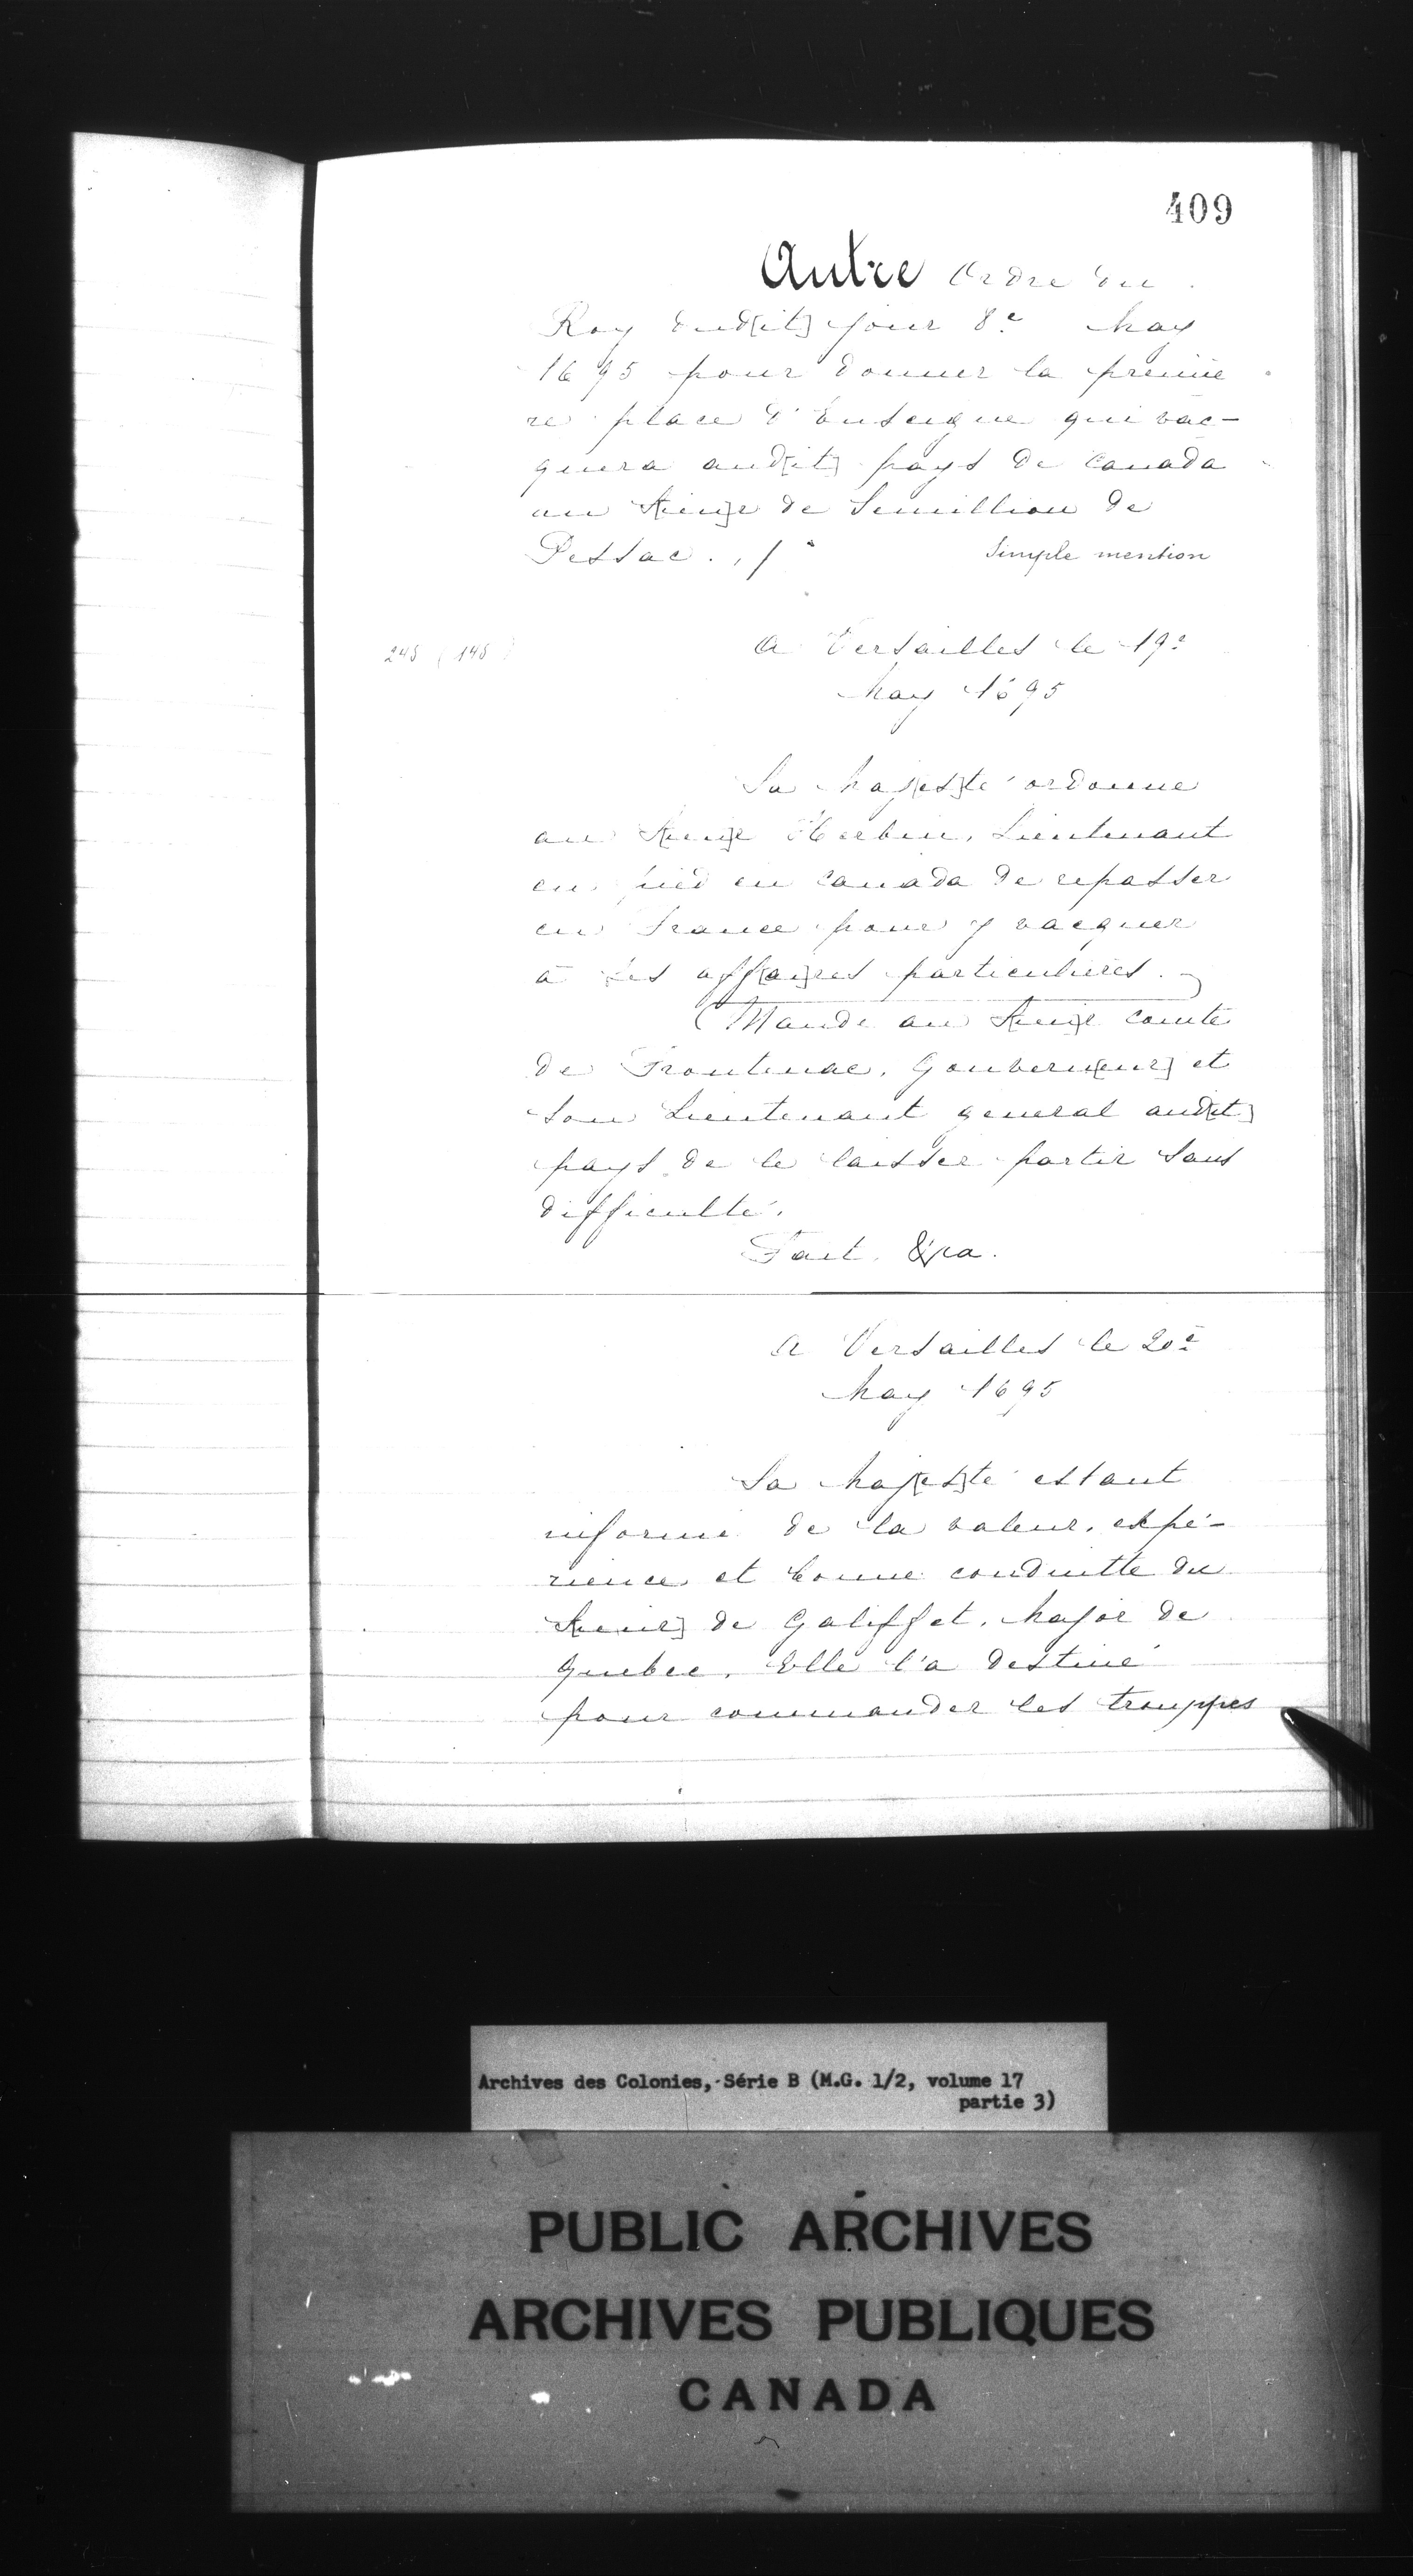 409
Autre Ordre du
Roy dud[it] jour 8e May
1695 pour donner la premie
re place d'Enseigne qui vac-
quera aud[it] pays de Canada
au S[ieu]r de Semillion de
Pessac. ./.
Simple mention
248 (148)
A Versailles le 19e
May 1695
Sa Maj[es]té ordonne
au S[ieu]r Herbin, Lieutenant
en pied en Canada de repasser
en France pour y vacquer
à ses aff[ai]res particulieres.
Mande au S[ieu]r comte
de Frontenac, Gouvern[eur] et
son Lieutenant general aud[it]
pays de le laisser partir sans
difficulté.
Fait, &ca.
A Versailles le 20e
May 1695
Sa Maj[es]té estant
informé de la valeur, expé-
rience et bonne conduitte du
S[ieur] de Galiffet, Major de
Quebec, Elle l'a destiné
pour commander les trouppes
Archives des Colonies, Série B (M.G. 1/2, volume 17
partie 3)
PUBLIC ARCHIVES
ARCHIVES PUBLIQUES
CANADA